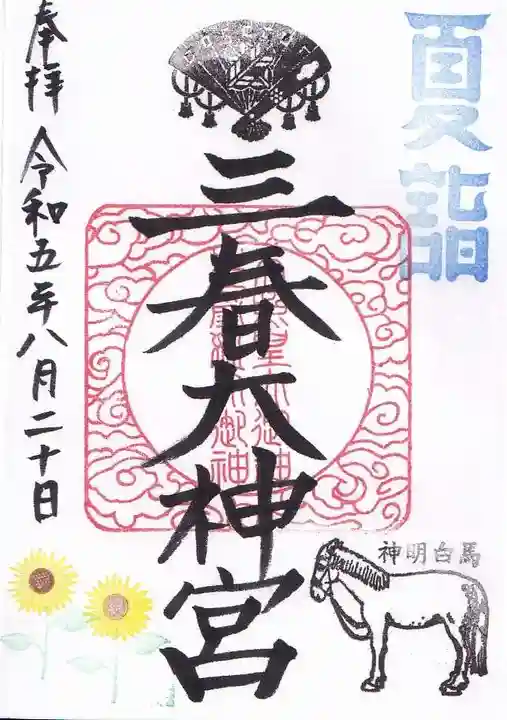 夏詣
三春大神宮
奉拝 令和五年八月二十日
神明白馬